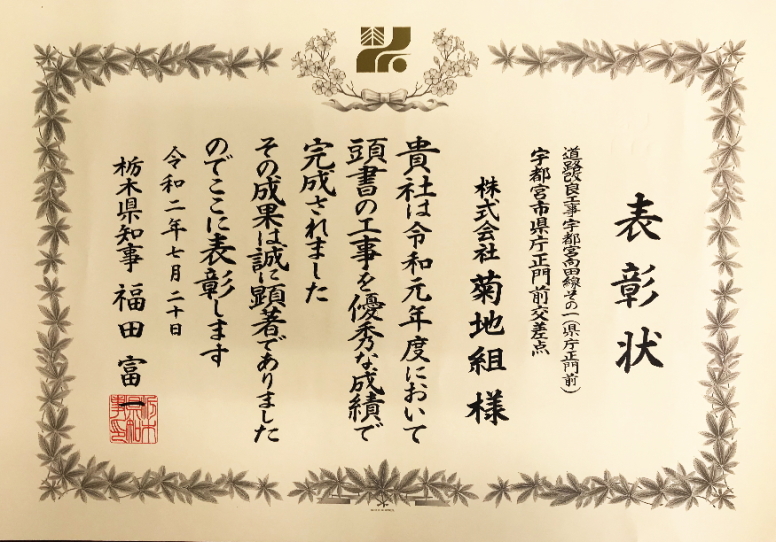 表彰状
道路改良工事宇都宮向田線その一(県庁正門前)
宇都宮市県庁正門前交差点
株式会社 菊地組 様
貴社は令和元年度において
頭書の工事を優秀な成績で
完成されました
その成果は誠に顕著でありました
のでここに表彰します
令和二年七月二十日
栃木県知事 福田富一
栃木県知事印